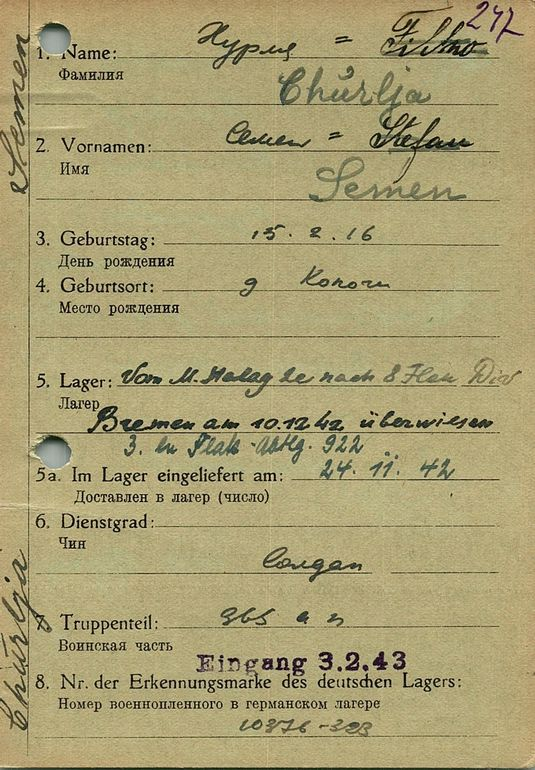 247
1. Name: Хурля =
Фамилия
Chŭrlja
2. Vornamen: Семен = Stefan
Имя
Semen
3. Geburtstag: 15. 2. 16
День рождения
4. Geburtsort: д
Место рождения
5. Lager: Vom M. Stalag 2e nach 8 Flak Div
Лагер
Bremen am 10.12.42 überwiesen
3. Flak-Abtlg. 922
5a. Im Lager eingeliefert am: 24. 11. 42
Доставлен в лагер (число)
6. Dienstgrad:
Чин
Солдат
7. Truppenteil: 365
Воинская часть
Eingang 3.2.43
8. Nr. der Erkennungsmarke des deutschen Lagers:
Номер военнопленного в германском лагере
10376-323
Chŭrlja Semen